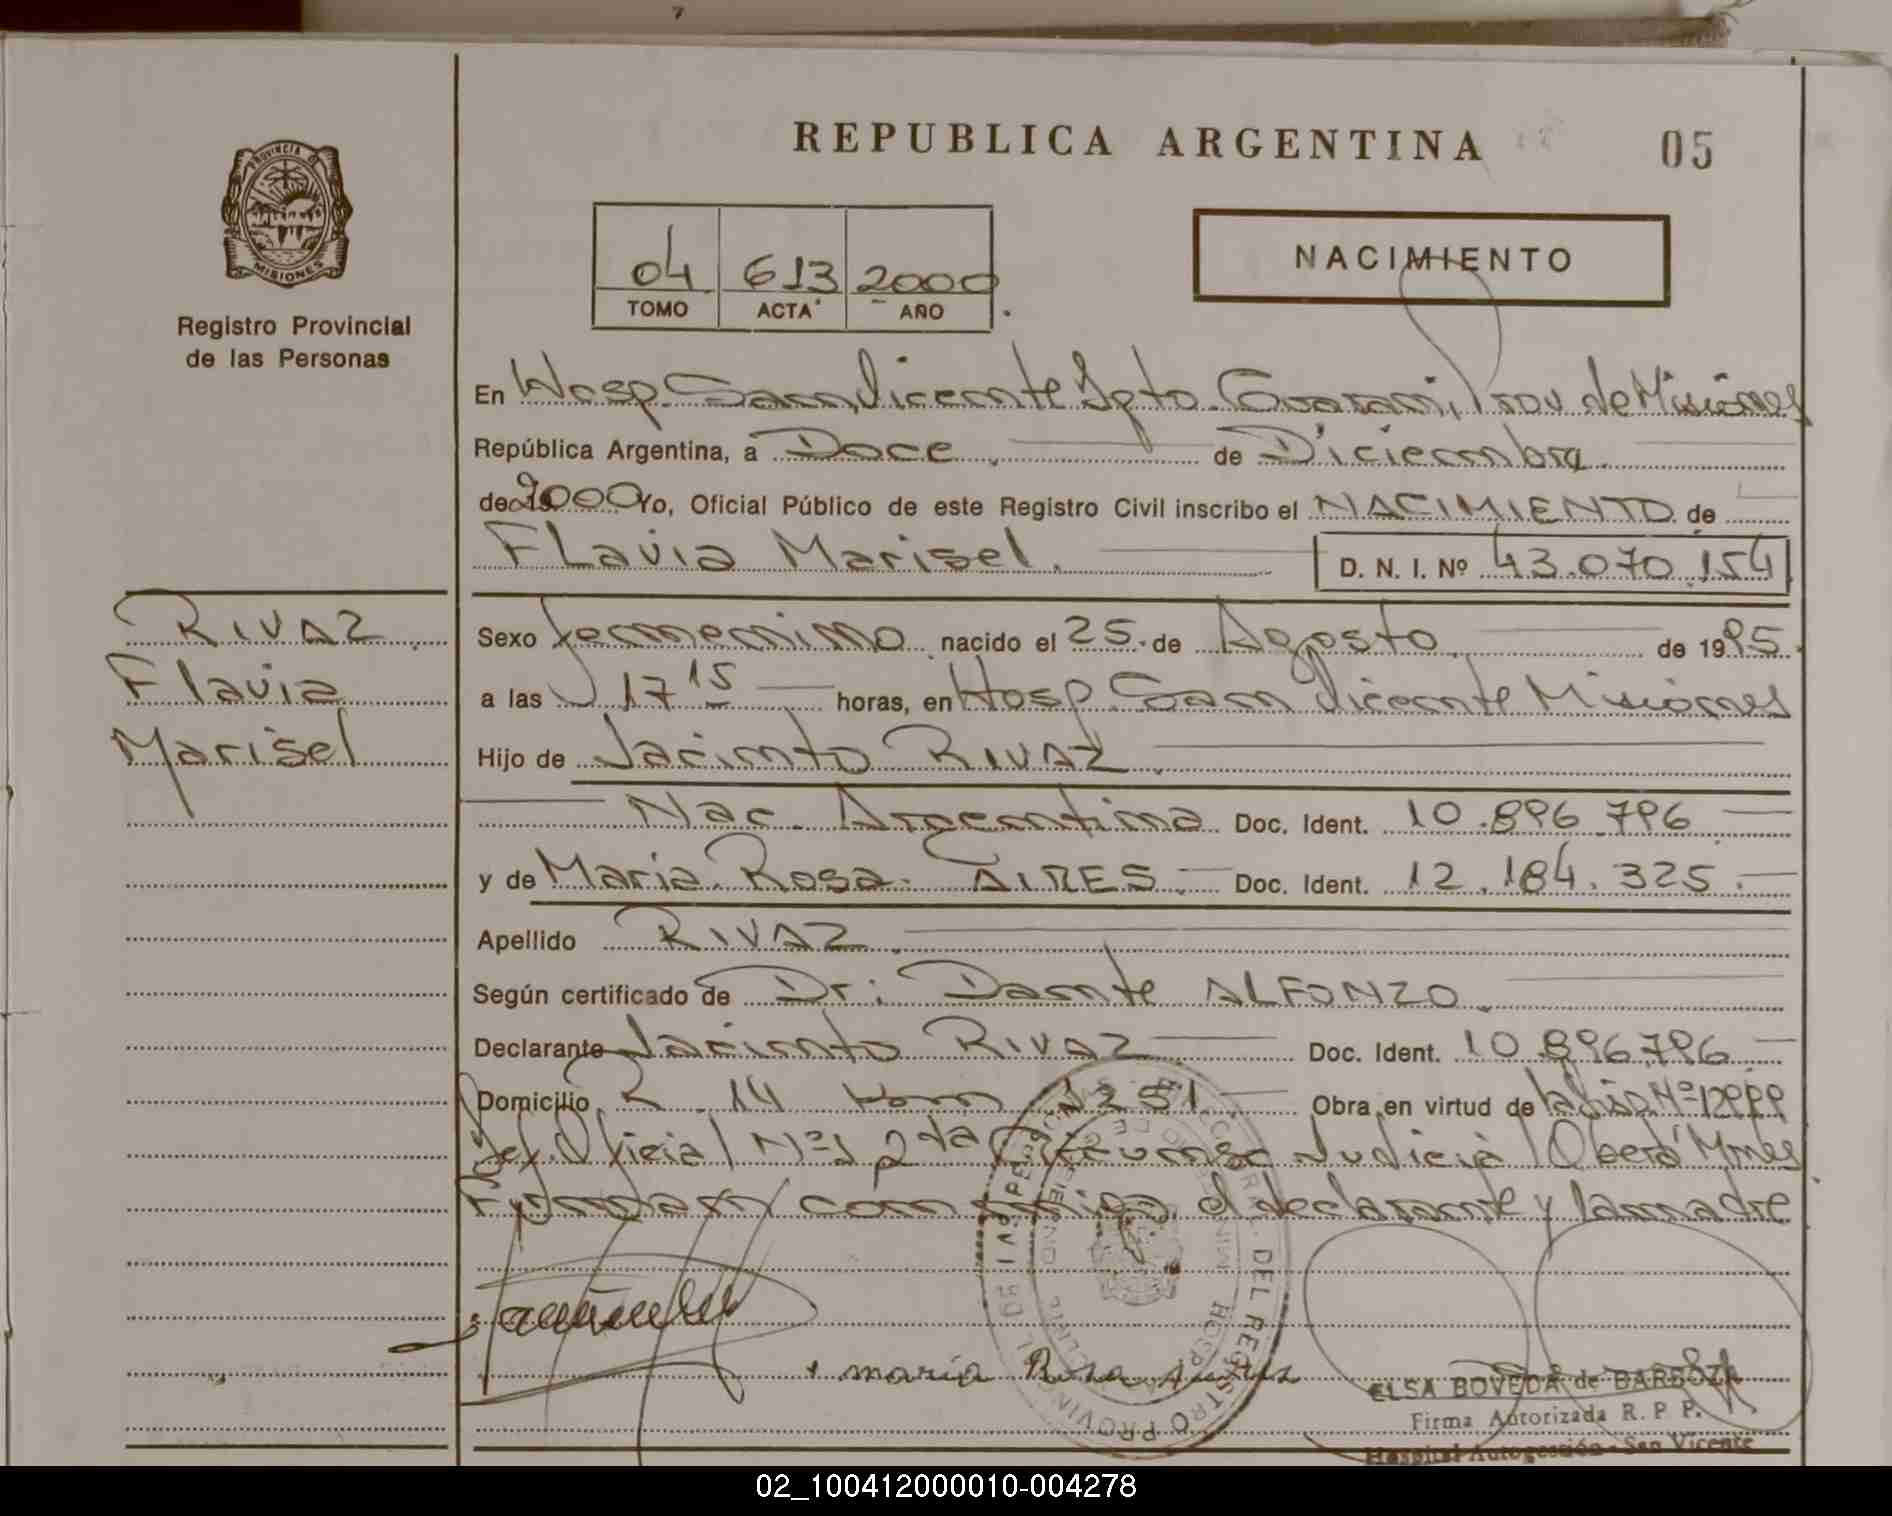 REPUBLICA ARGENTINA
05
PROVINCIA DE
MISIONES
Registro Provincial
de las Personas
04 613 2000
TOMO ACTA AÑO
NACIMIENTO
En Hosp. San Vicente Dpto. Guarani, Prov de Misiones
República Argentina, a Doce de Diciembre
de 2000 Yo, Oficial Público de este Registro Civil inscribo el NACIMIENTO de
Flavia Marisel. D. N. I. Nº 43.070.154
RIVAZ
Flavia
Marisel
Sexo femenino nacido el 25 de Agosto de 1995.
a las 17 15 horas, en Hosp. San Vicente Misiones
Hijo de Jacinto RIVAZ.
Nac. Argentina Doc. Ident. 10.896.796
y de Maria Rosa AIRES Doc. Ident. 12.184.325.
Apellido RIVAZ.
Según certificado de Dr: Dante ALFONZO.
Declarante Jacinto RIVAZ Doc. Ident. 10.896.796
Domicilio R. 14 Km 1251 Obra en virtud de
Def. Oficial Nº 1 2da Circunsc Judicial Oberá Mnes
Firman conmigo el declarante y la madre
maria Rosa
DEL REGISTRO PROVINCIAL DE LAS PERSONAS
ELSA BOVEDA de BARBOZA
Firma Autorizada R. P. P.
Hospital Autogestión - San Vicente
02_100412000010-004278